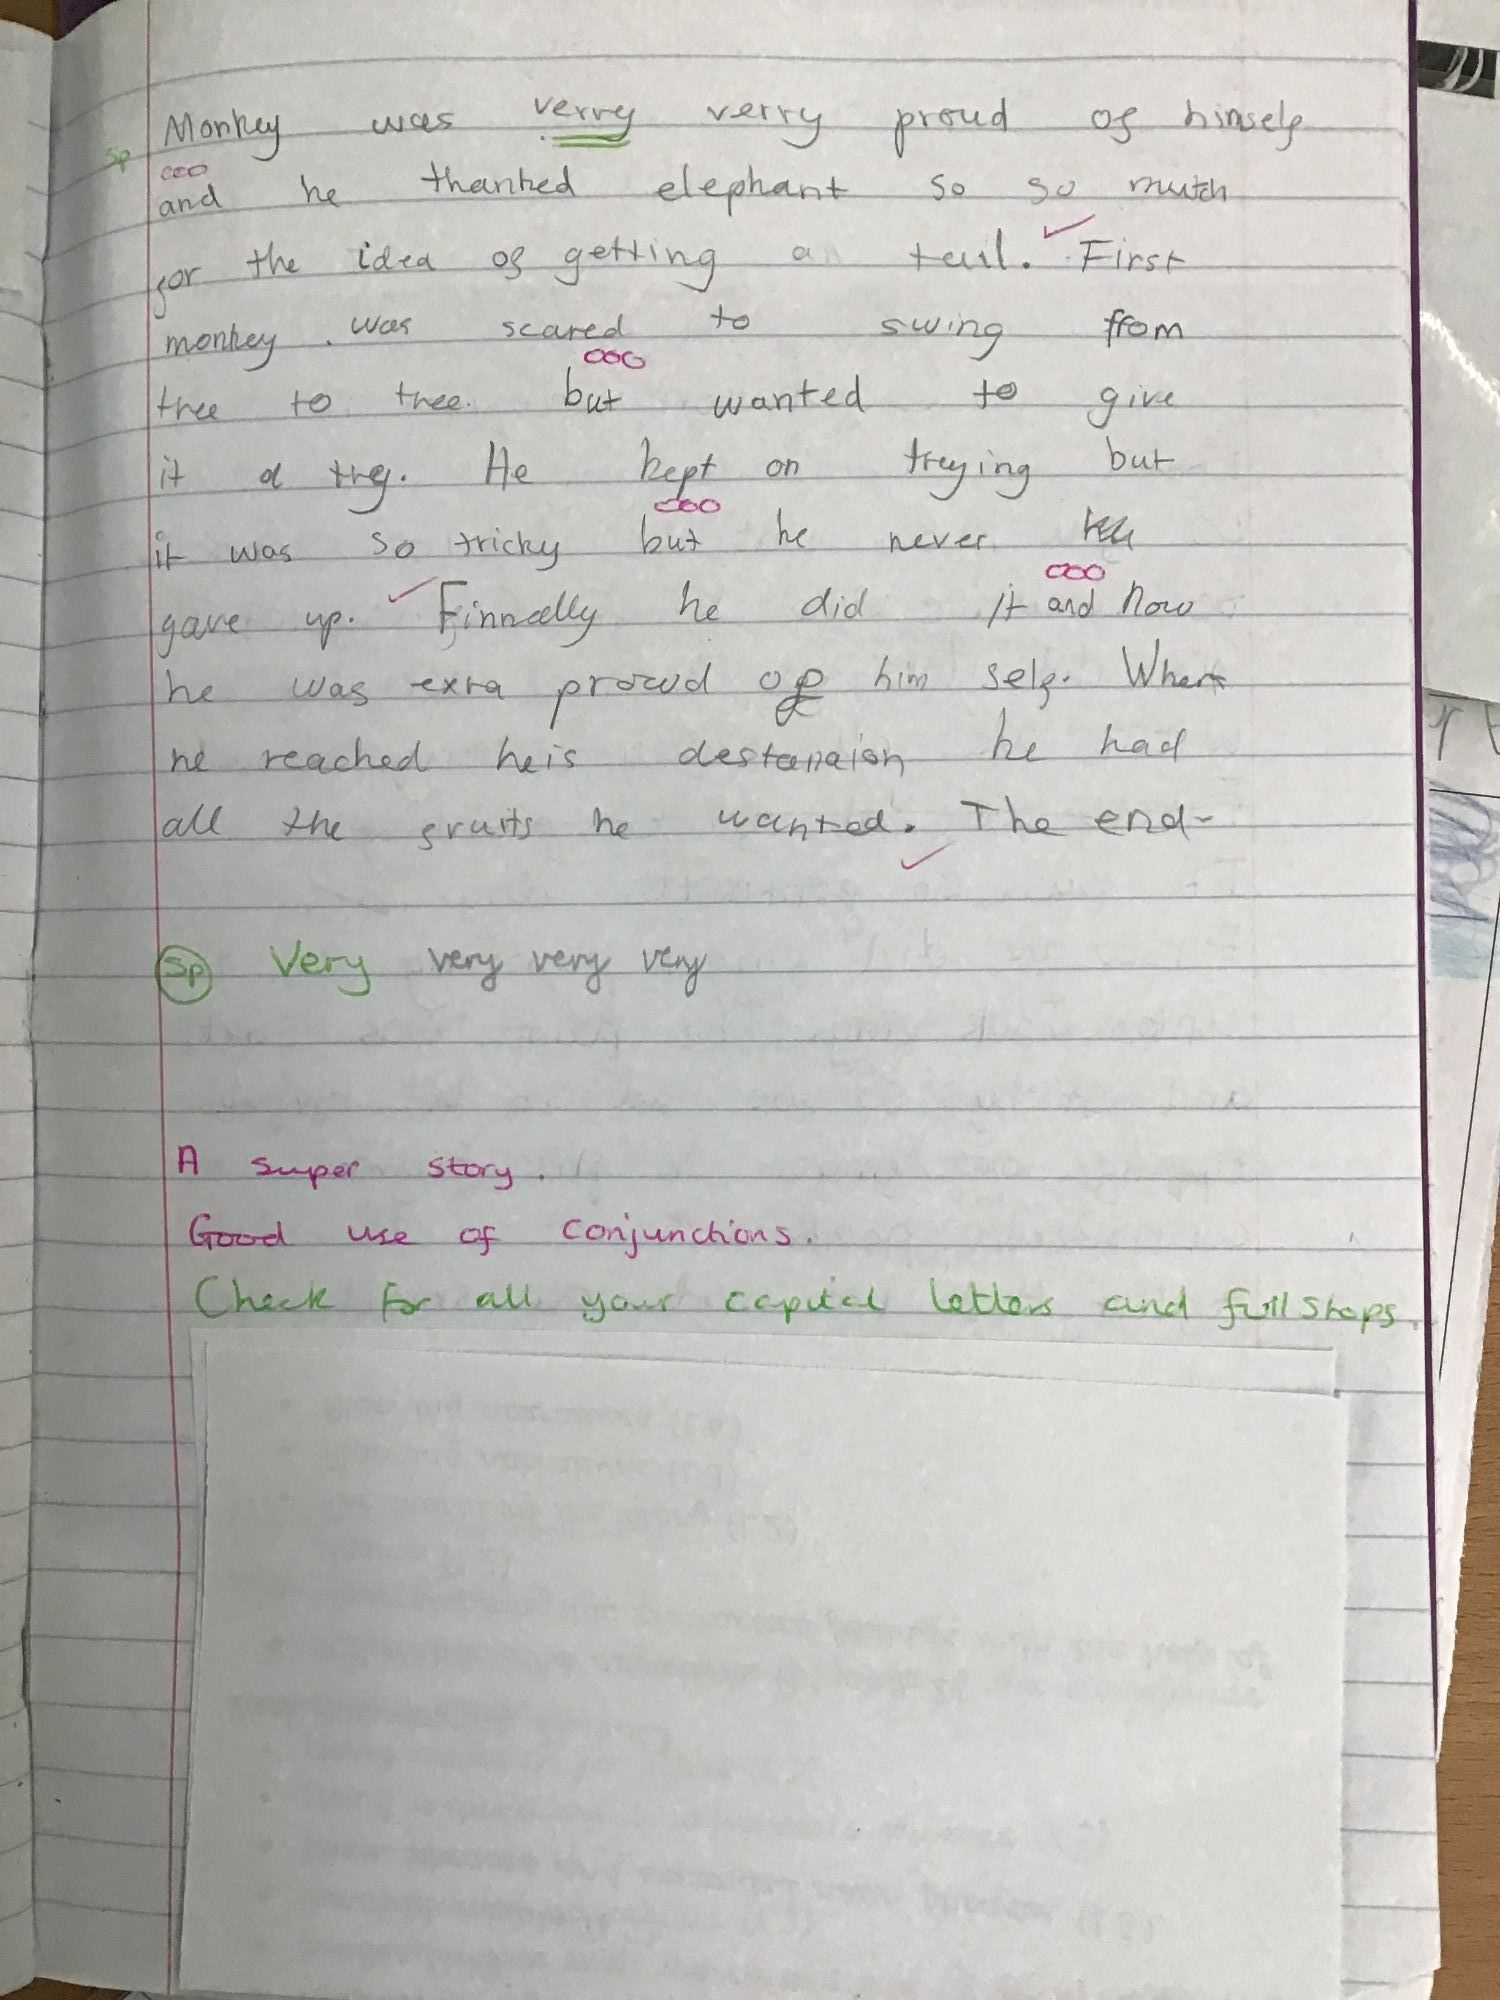 Monkey was verry verry proud of himself
sp
and he thanked elephant so so mutch
for the idea of getting a tail. First
monkey was scared to swing from
thee to thee. but wanted to give
it a trey. He kept on treying but
it was so tricky but he never
gave up. Finnaelly he did it and now
he was exra proud of him self. When
he reached heis destanaion he had
all the fruits he wanted. The end-
Sp Very very very very
A super story.
Good use of conjunctions.
Check for all your capital letters and full stops.